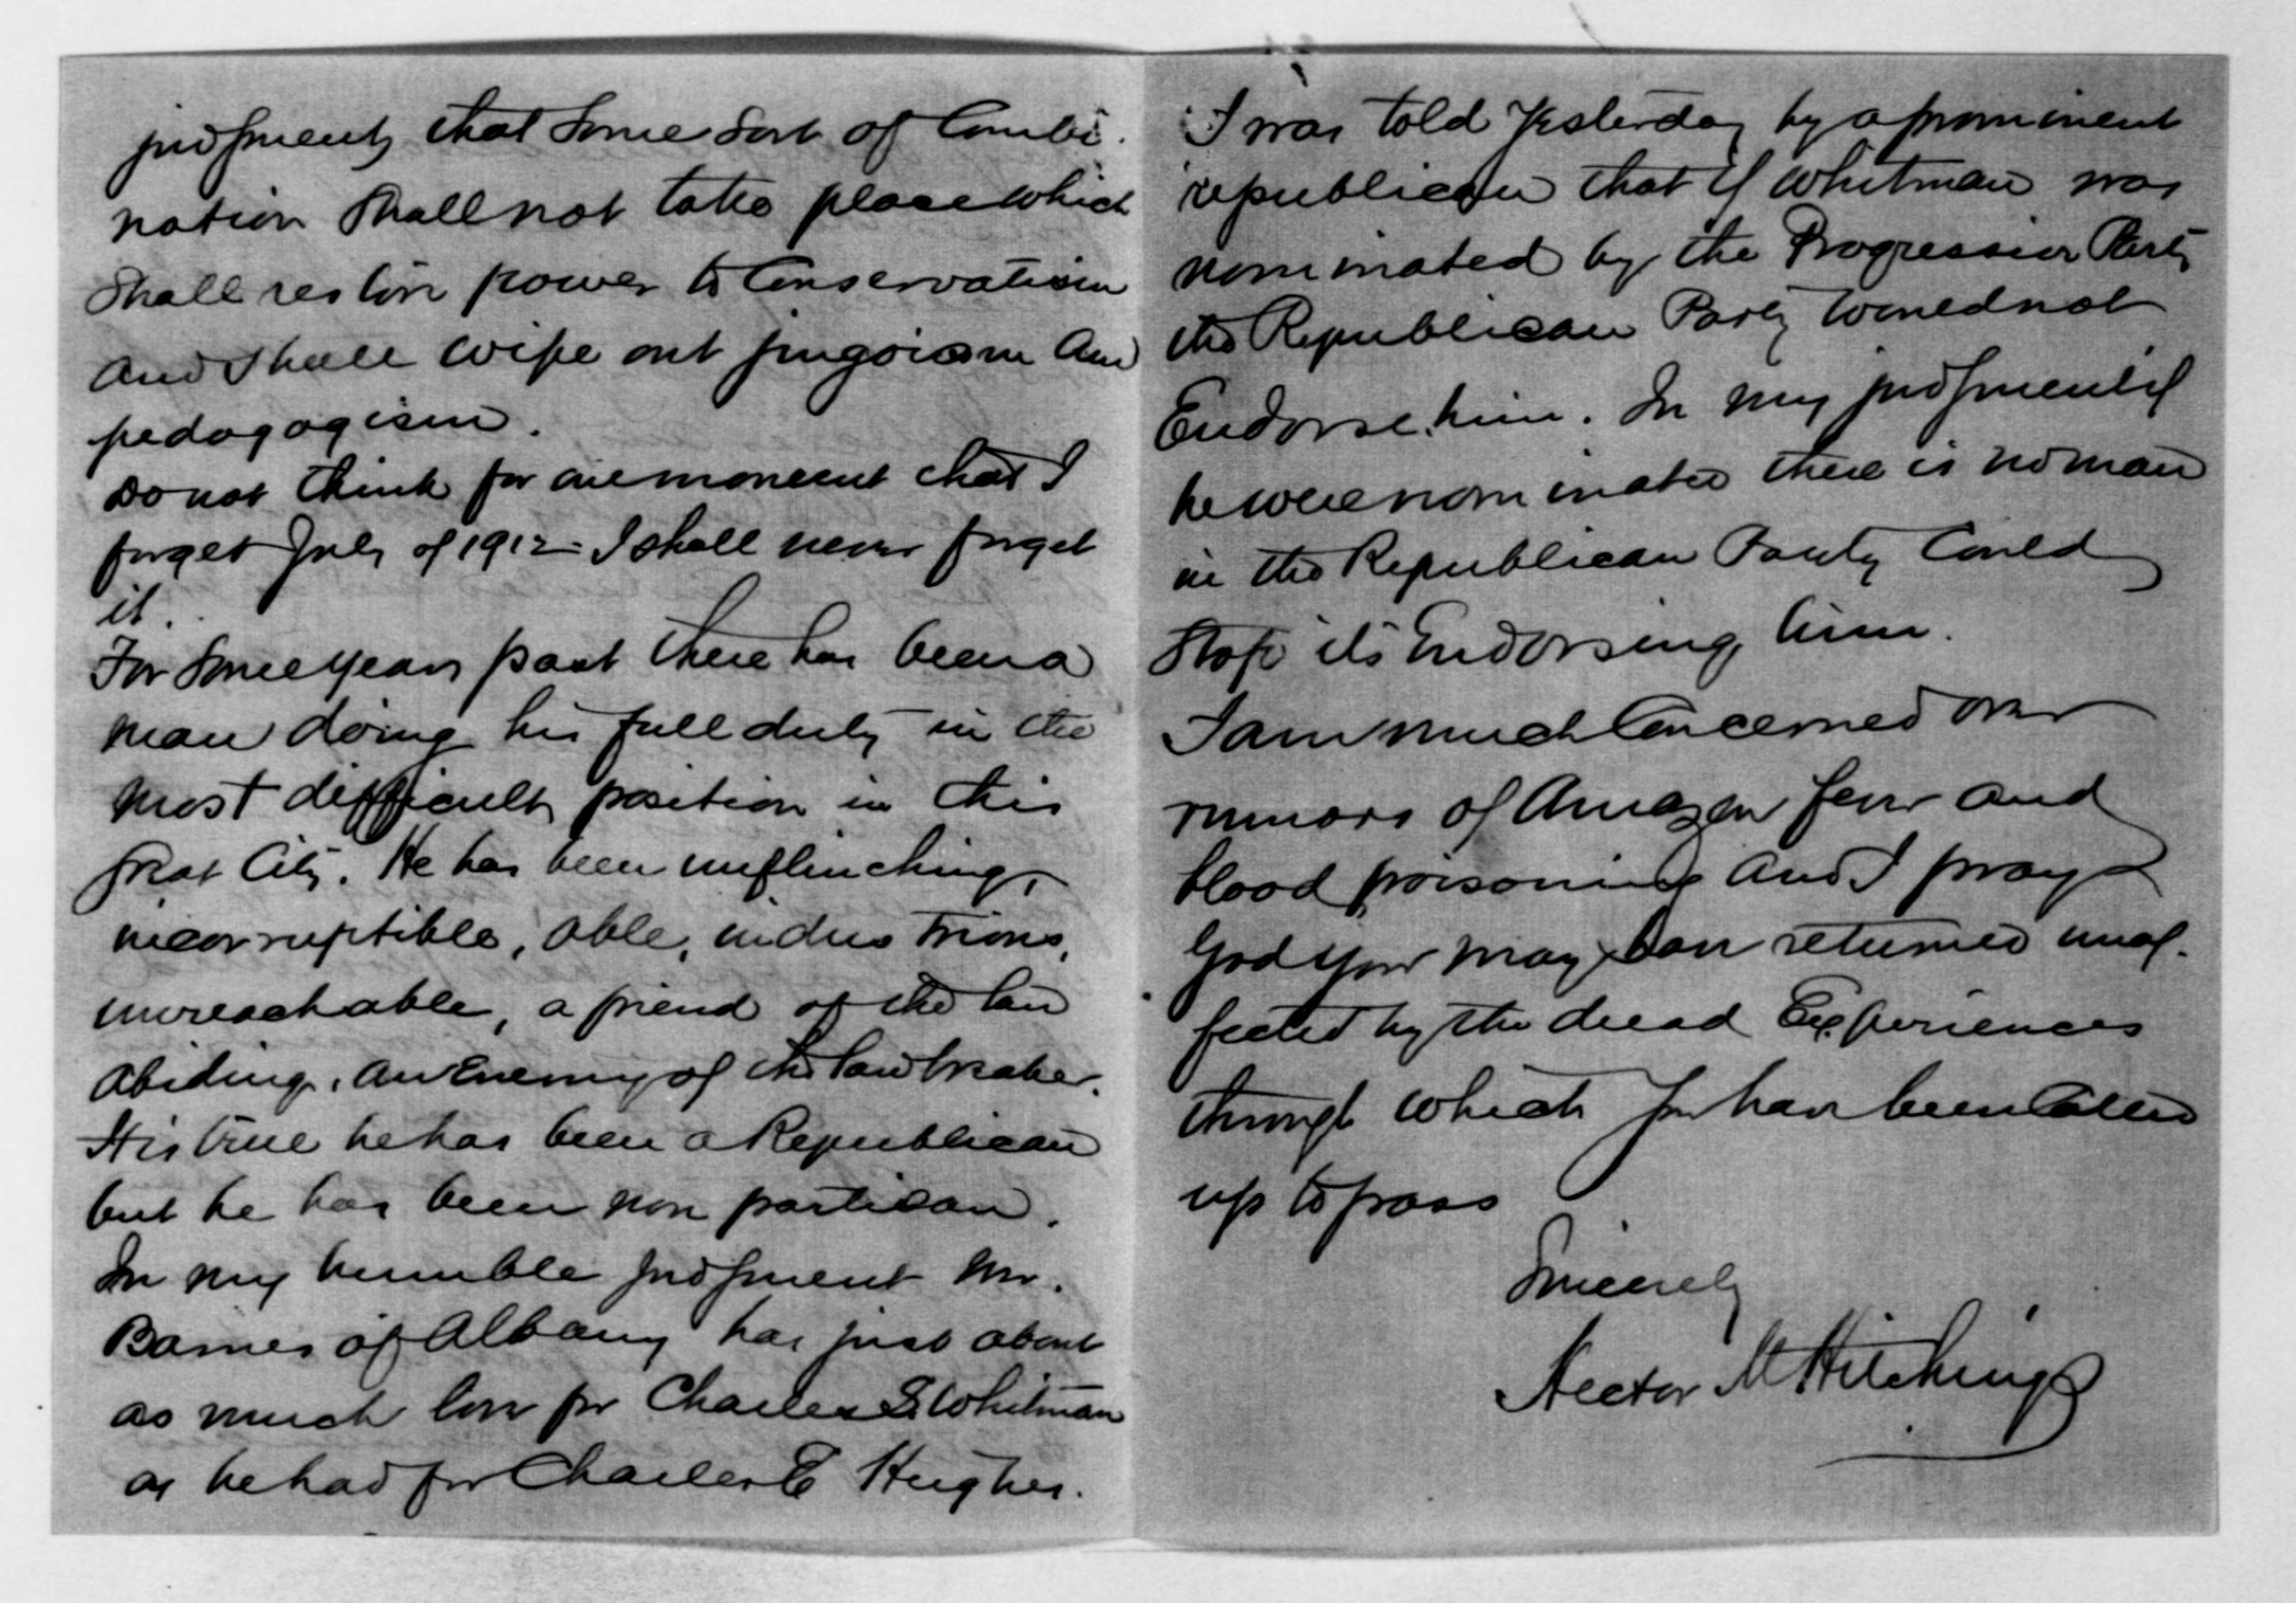 judgment that some sort of combi-
nation shall not take place which
shall restore power to Conservatism
and shall wipe out jingoism and
pedagogism.
Do not think for one moment that I
forget July of 1912 - I shall never forget
it.
For some years past there has been a
man doing his full duty in the
most difficult position in this
great City. He has been unflinching,
incorruptible, able, industrious,
unreachable, a friend of the law
abiding, an Enemy of the law breaker.
It is true he has been a Republican
but he has been non partisan.
In my humble judgment Mr.
Barnes of Albany has just about
as much love for Charles S. Whitman
as he had for Charles E Hughes.
I was told yesterday by a prominent
republican that if Whitman was
nominated by the Progressive Party
the Republican Party would not
Endorse him. In my judgment if
he were nominated there is no man
in the Republican Party could
stop its Endorsing him.
I am much concerned over
rumors of Amazon fever and
blood poisoning and I pray
God you may have returned unaf-
fected by the dread Experiences
through which you have been called
up to pass
Sincerely
Hector M Hitchings